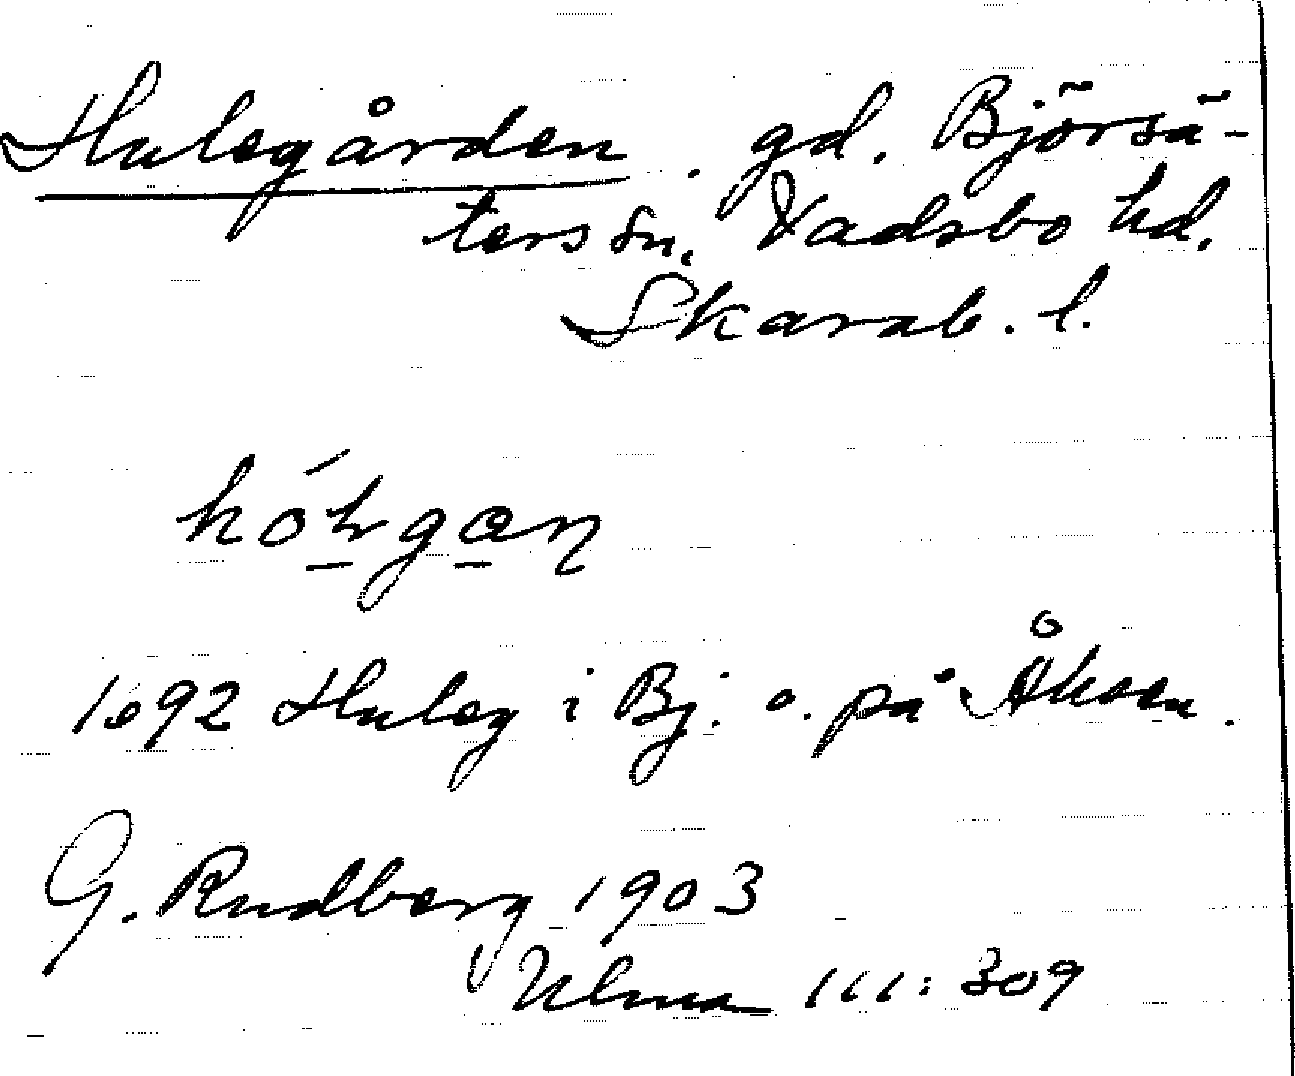 Hulegården. gd. Björsä-
ters sn. Vadsbo hd.
Skarab. l.
1692 Huleg i Bj. o. på Åksen.
G. Rudberg 1903
Ulma 111:309